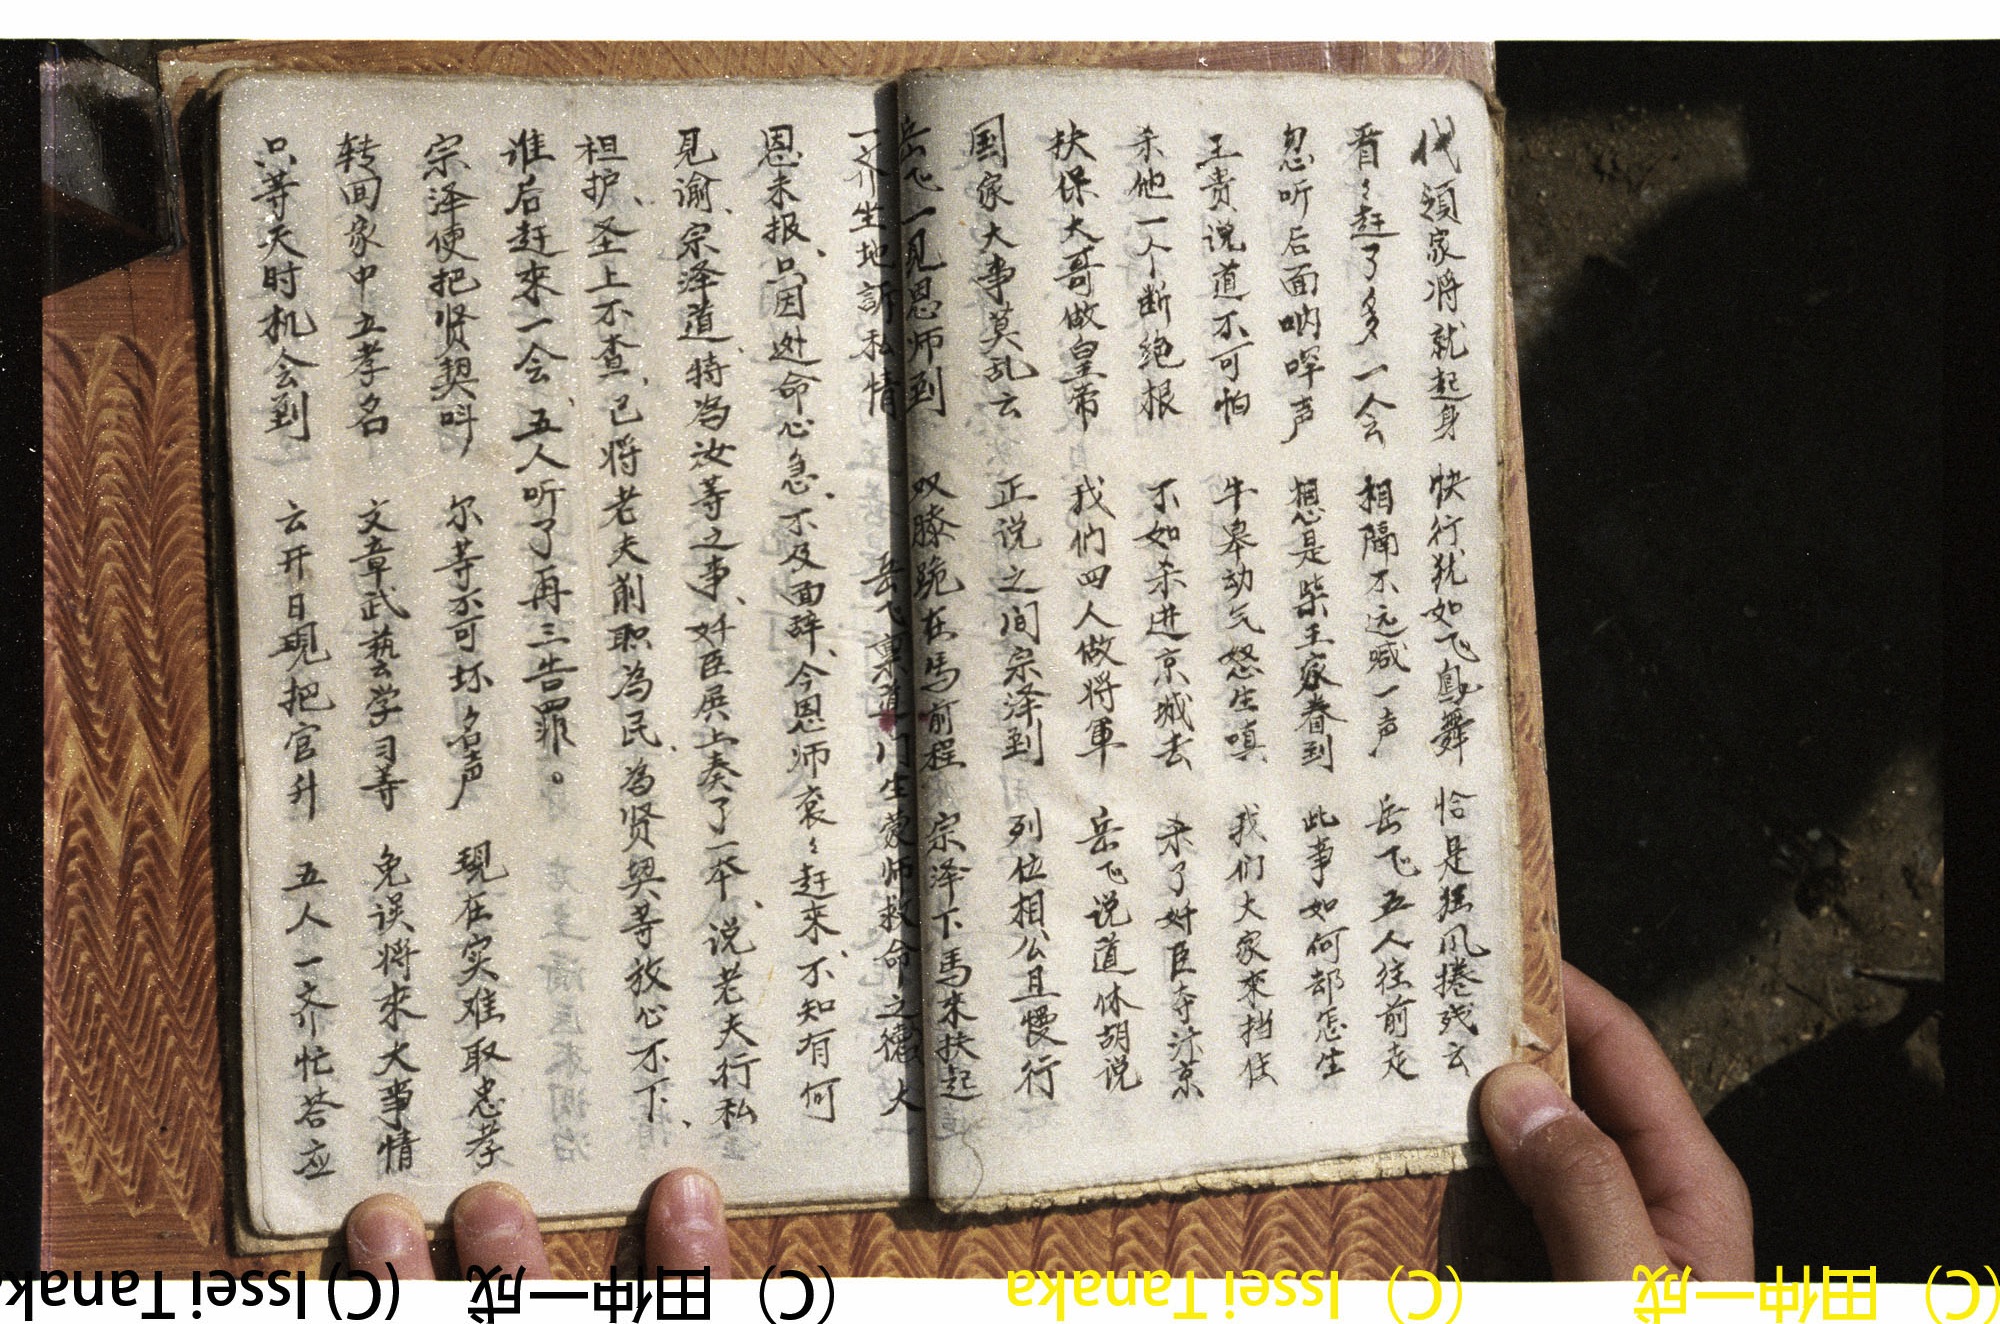 代領家将就起身 快行犹如飞鳥舞 恰是狂风捲残云
看〻赶了多一会 相隔不远喊一声 岳飞五人往前走
忽听后面呐喊声 想是柴王家眷到 此事如何部怎生
王贵说道不可怕 牛皋动气怒生嗔 我们大家來挡住
杀他一个断绝根 不如杀进京城去 杀了奸臣夺汴京
扶保大哥做皇帝 我们四人做将軍 岳飞说道休胡说
国家大事莫乱云 正说之间宗泽到 列位相公且慢行
岳飞一見恩师到 双膝跪在馬前程 宗泽下馬來扶起
一齐生地訴私情 岳飞禀道门生蒙师救命之德大
恩未报、只因逃命心急、不及面辞、今恩师衮〻赶來、不知有何
見谕、宗泽道、特為汝等之事、奸臣展上奏了一本、说老夫行私
袒护、圣上不查、已将老夫削职為民、為贤契等放心不下、
谁后赶來一会、五人听了再三告罪。
宗泽便把贤契呌 尔等不可坏名声 現在实难取忠孝
转回家中立孝名 文章武藝学习等 免误将來大事情
只等天时机会到 云开日現把官升 五人一齐忙答应
(C) Issei Tanaka (C) 田仲一成 (C) Issei Tanaka (C) 田仲一成